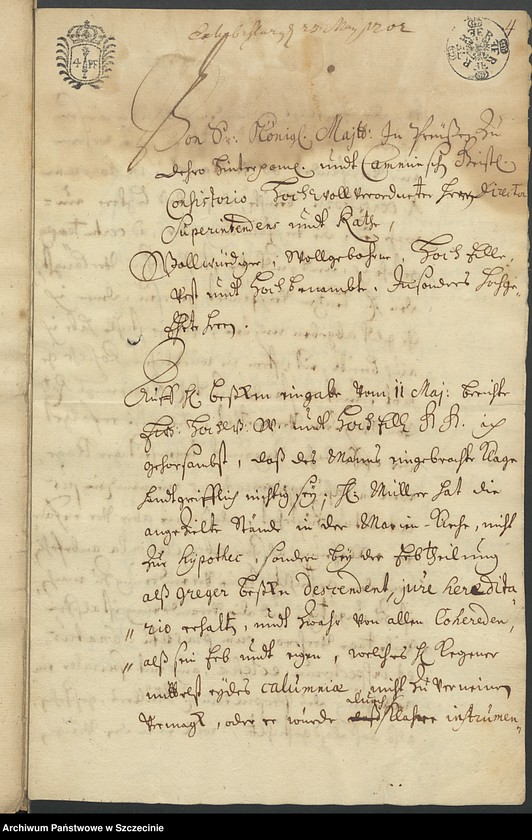 4 PF
4
25 May 1702
Von Sr: Königl. Majtt: In Preußen zu
dehro hinterpom. undt Camminsch. Geistl.
Consistorio Hochwollverordnete Herrn Director
Superintendens undt Räthe,
Wollwürdiger, Wollgebohrne, Hoch Edle,
Vest undt Hochbenambte, Insonders Hochge-
Ehrte Herrn.
Auff H. Beßken eingabe vom 11 Maj: berichte
Ew. Hochw. W. undt HochEdl.
gehorsambst, daß des Manns eingebrachte Klage
handtgreifflich nichtig sey; H. Müller hat die
angezielte Stände in der Marien-Kirche, nicht
zur hypothec, sondern bey der Erbtheilung
alß Greger Beßken descendent, jure heredita
rio erhalten, undt zwahr von allen Cohereden,
alß sein Erb undt eigen, welches H. Kegener
mittelst eydes calumniae nicht zu verneinen
vermagk, oder er würde durch klahre instrumen-
Archiwum Państwowe w Szczecinie